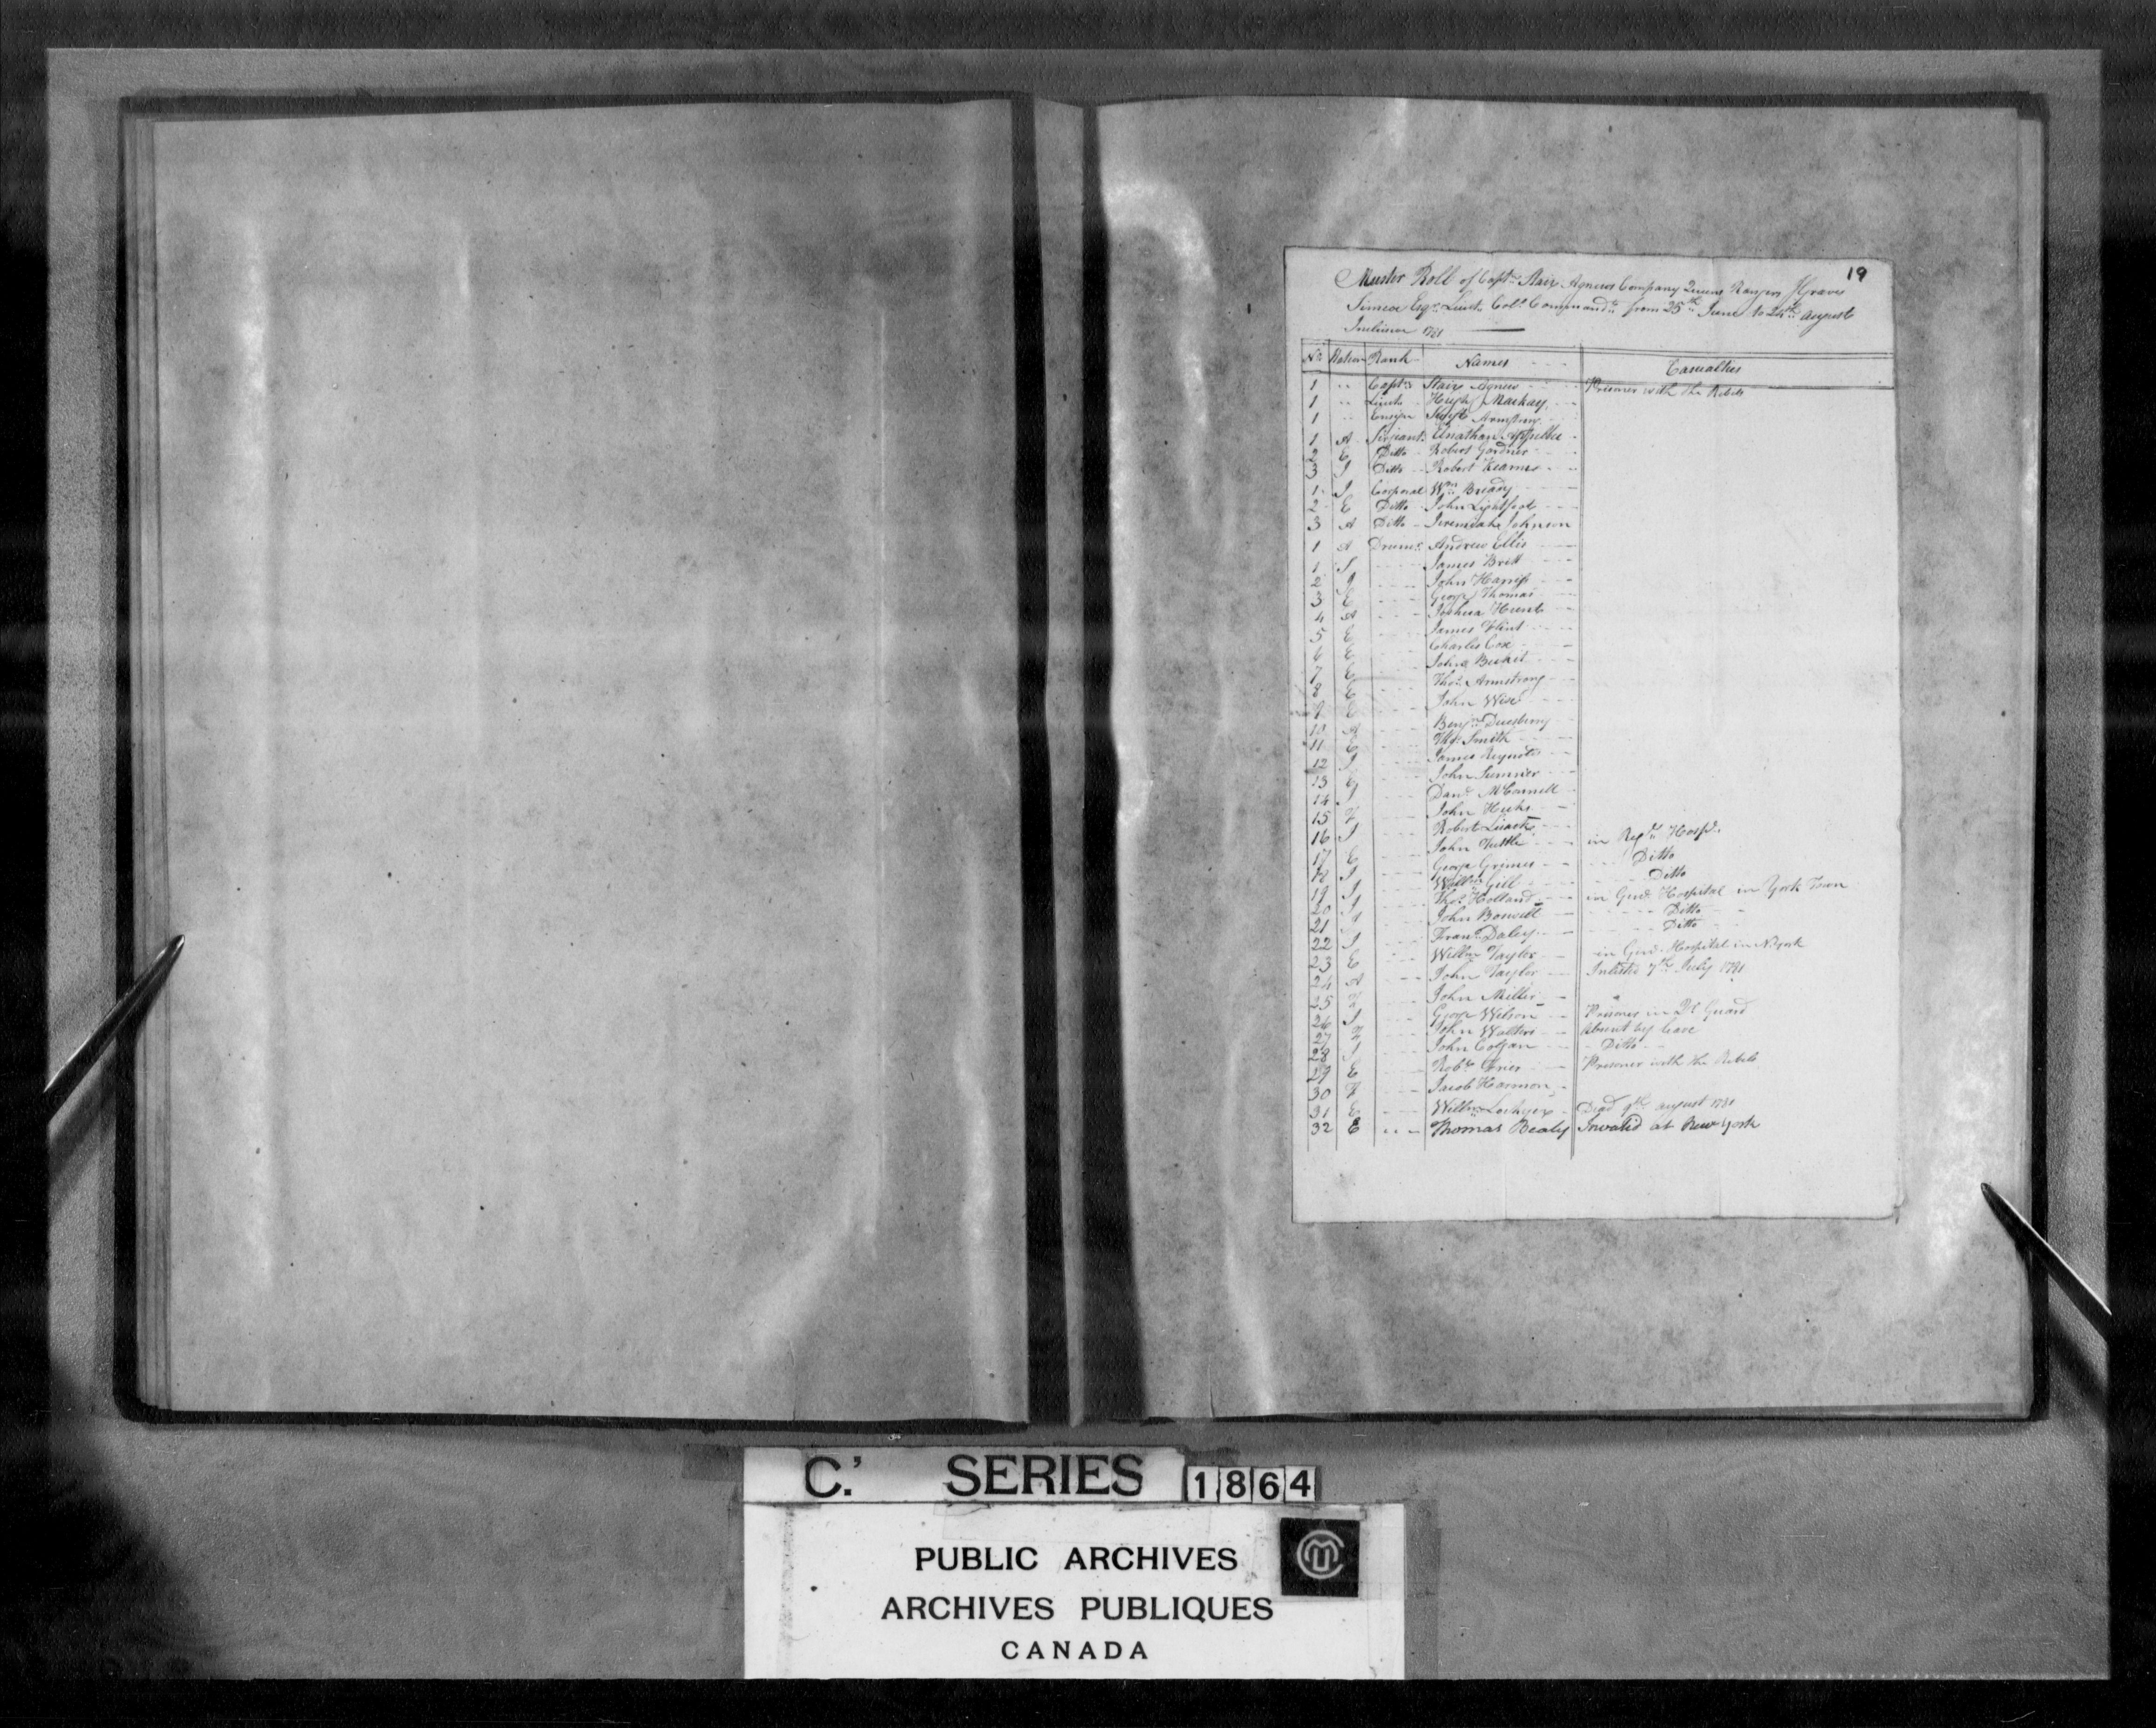 19
Muster Roll of Captn Stair Agnews Company Queens Rangers J Graves
Simcoe Esqr Lieut. Coll. Commandt from 25th June to 24th August
Inclusive 1781
No Nation Rank Names Casualties
1 " Captn Stair Agnew Prisoner with the Rebels
1 " Lieut. Hugh Mackay
1 " Ensign Armstrong
1 A Serjeant Jonathan
2 E Ditto Robert Gardner
3 I Ditto Robert Kearnes
1 I Corporal Wm Bready
2 E Ditto John Lightfoot
3 A Ditto Jeremiah Johnson
1 A Drumr Andrew Ellis
1 S James Britt
2 John Harriss
3 E George Thomas
4 A Joshua Hunt
5 E James Flint
6 E Charles Cox
7 E John Becket
8 E Thos Armstrong
9 E John Wise
10 A Benjn Duesberry
11 E Smith
12 I James Reynolds
13 John Sumner
14 I Danl McConnell
15 John Hicks
16 I Robert
17 E John Tuttle in Regtl Hospl.
18 I George Grimes Ditto
19 I Willm Gill Ditto
20 I Thos Holland in Genl Hospital in York Town
21 John Boswell Ditto
22 I Frans Daley Ditto
23 E Willm Taylor in Genl Hospital in N York
24 A John Taylor Inlisted 7th July 1781
25 John Miller
26 I George Wilson Prisoner in Guard
27 John Walters Absent by leave
28 I John Colgan Ditto
29 E Robt Prisoner with the Rebels
30 Jacob Harmon
31 E Willm Lockyer Dead 9th August 1781
32 E Thomas Bealy Invalid at New York
C.' SERIES 1864
PUBLIC ARCHIVES
ARCHIVES PUBLIQUES
CANADA